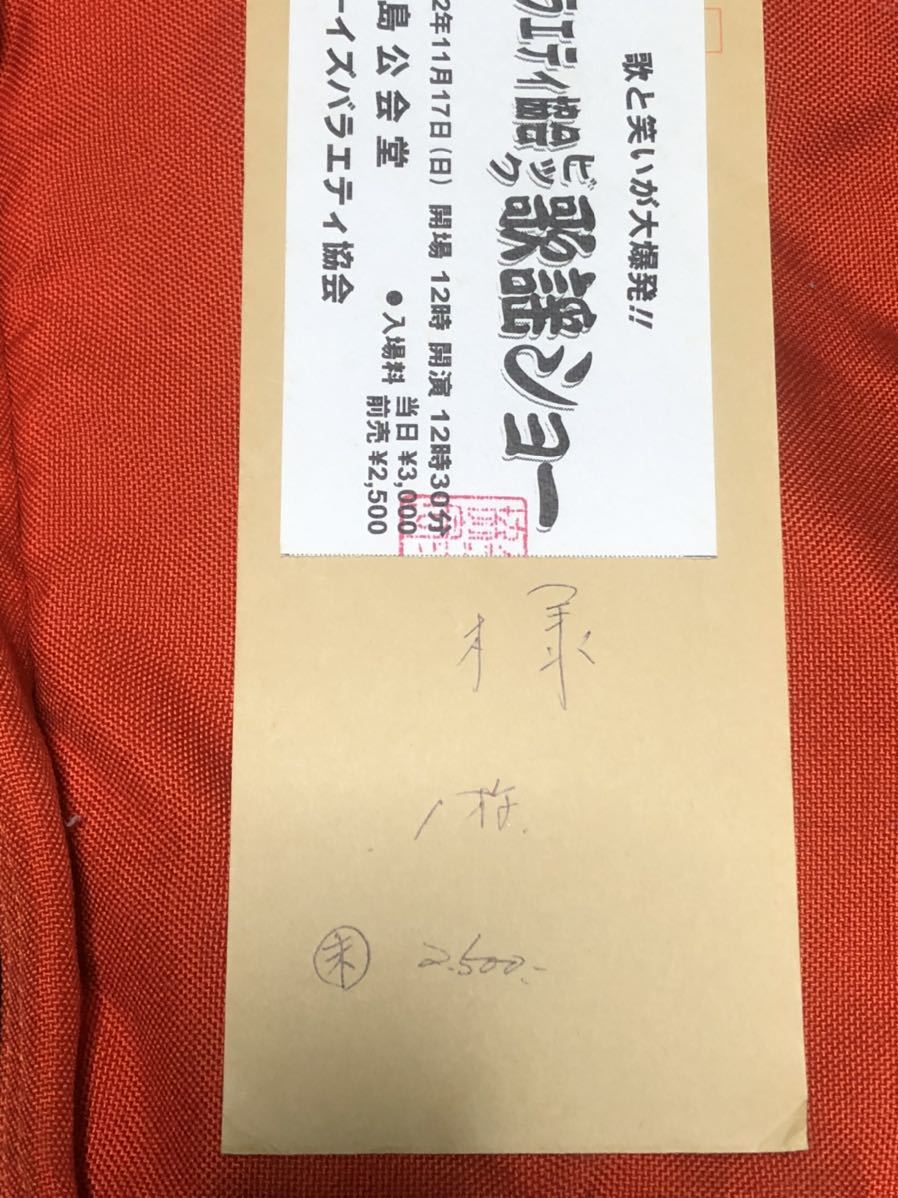 歌と笑いが大爆発!!
ラエティ協会
ビッグ
歌謡ショー
2年11月17日(日) 開場 12時 開演 12時30分
島公会堂
●入場料 当日 ¥3,000
前売 ¥2,500
ーイズバラエティ協会
様
1枚
未 2.500.-